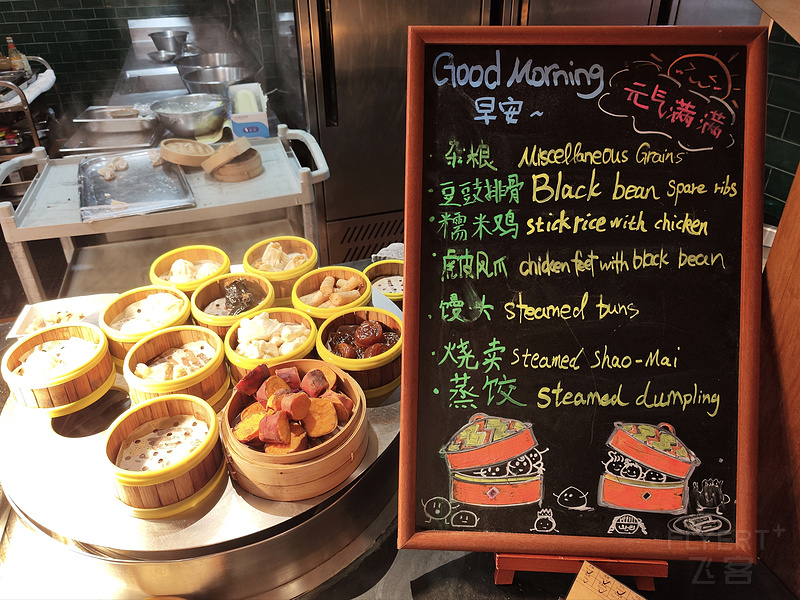 Good Morning
早安~
元气满满
· 杂粮 Miscellaneous Grains
· 豆豉排骨 Black bean spare ribs
· 糯米鸡 stick rice with chicken
· 虎皮凤爪 chicken feet with black bean
· 馒头 steamed buns
· 烧卖 steamed shao-Mai
· 蒸饺 steamed dumpling
FLYERT+
飞客